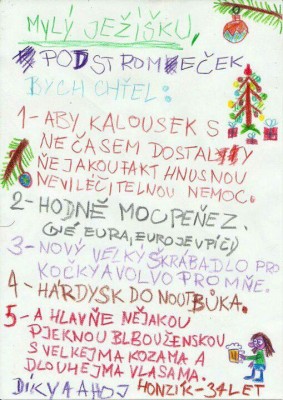 MYLÝ JEŽÍŠKU,
POD STROMEČEK
BYCH CHŤEL:
1-ABY KALOUSEK S
NEČASEM DOSTALY
ŇEJAKOU FAKT HNUSNOU
NEVILÉČITELNOU NEMOC.
2-HODNĚ MOC PEŇEZ.
(NÉ EURA, EURO JE V PIČI)
3-NOVÝ VELKÝ ŠKRÁBADLO PRO
KOČKY A VOLVO PRO MŇE.
4-HÁRDYSK DO NOUTBŮKA.
5-A HLAVŇE NĚJAKOU
PJEKNOU BLBOU ŽENSKOU
S VELKEJMA KOZAMA A
DLOUHEJMA VLASAMA.
DÍKY A AHOJ HONZÍK-34 LET